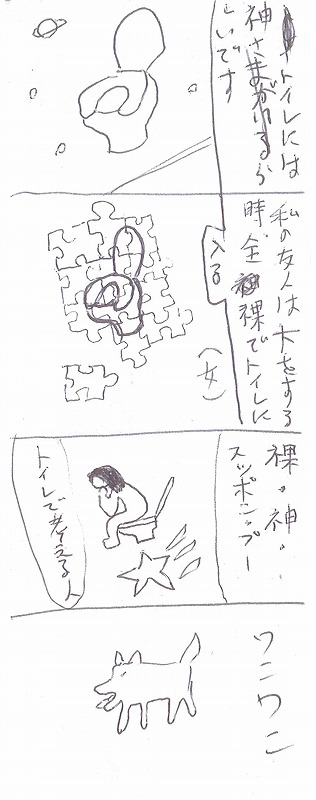 トイレには
神さまがいるら
しいです
私の友人は大をする
時全裸でトイレに
入る
(女)
裸・神・
スッポンプー
トイレで考える人
ワンワン